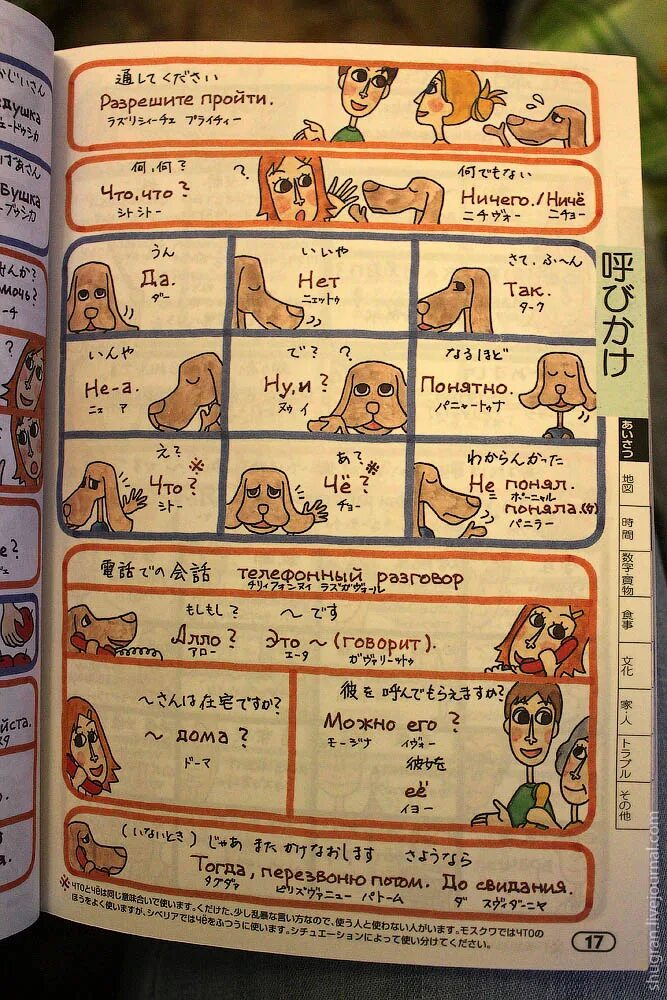 かじいさん
едушка
ェードゥシカ
ばあさん
бушка
ーブゥシカ
せんか?
мочь?
ーチ
?
?
йста.
スタ
通してください
Разрешите пройти.
ラズリシィーチェ プライチィー
何,何?
?
何でもない
Что,что?
シトシトー
Ничего./Ничё
ニチヴォー ニチョー
うん
Да.
ダー
いいや
Нет
ニェットゥ
さて、ふ〜ん
Так.
ターク
いんや
Не-а.
ニェ ア
で? ?
Ну,и?
ヌゥ イ
なるほど
Понятно.
パニャートゥナ
え?
※
Что?
シトー
あ?
※
Чё?
チョー
わからんかった
Не понял.
ポーニャル
поняла.(女)
パニラー
電話での会話 телефонный разговор
チリィフォンヌィ ラズガヴォール
もしもし? 〜です
Алло? Это ~ (говорит).
アロー エータ ガヴァリーットゥ
〜さんは在宅ですか?
~ дома?
ドーマ
彼を 呼んでもらえますか?
Можно его?
モージナ イヴォー
彼女を
её
イヨー
(いないとき) じゃあ またかけなおします さようなら
Тогда, перезвоню потом. До свидания.
タグダァ ピリズヴァニュー パトーム ダ スヴィダーニヤ
※ЧТОとЧЁは同じ意味合いで使います。くだけた、少し乱暴な言い方なので、使う人と使わない人がいます。モスクワではЧТОの
ほうをよく使いますが、シベリアではЧЁをふつうに使います。シチュエーションによって使い分けてください。
17
呼びかけ
あいさつ
地図
時間
数字・買物
食事
文化
家・人
トラブル
その他
shugran.livejournal.com